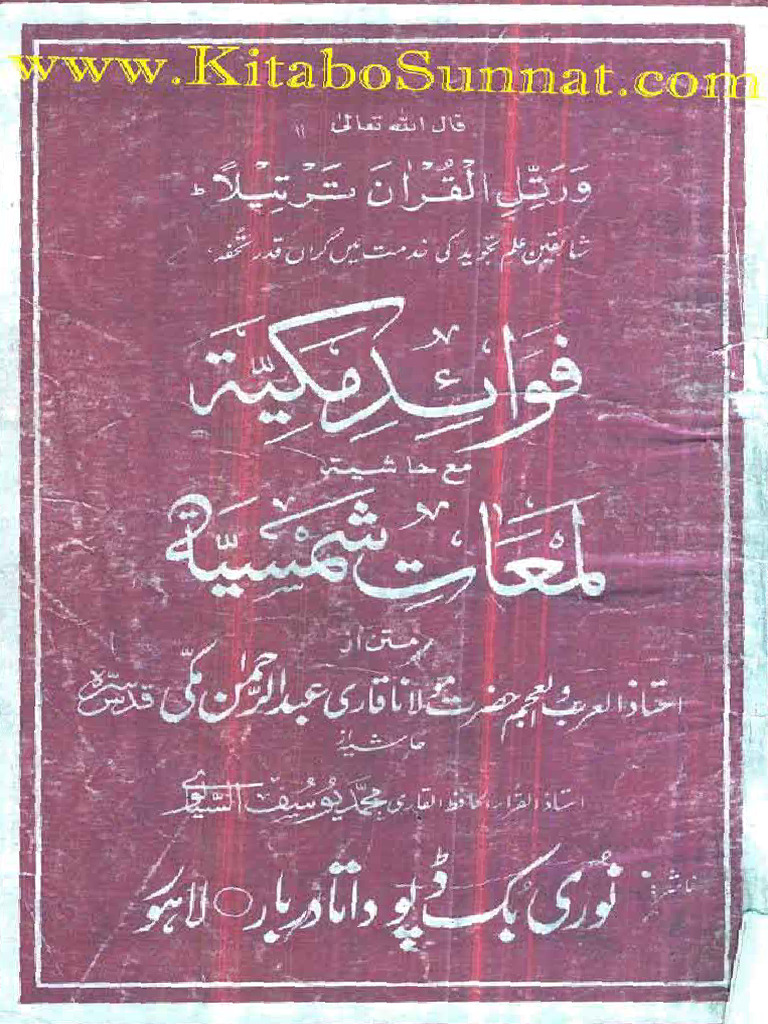 www.KitaboSunnat.com
قال اللہ تعالیٰ
وَرَتِّلِ الْقُرْاٰنَ تَرْتِيْلًا ط
شائقین علم تجوید کی خدمت میں گراں قدر تحفہ
فَوَائِدِ مَکِّیَّة
مع حاشیتہ
لمَعَاتِ شَمْسِیَّة
متن از
استاذ العرب والعجم حضرت مولانا قاری عبد الرحمٰن مکی قدس سرہ
حاشیہ از
استاذ القراء الحافظ القاری محمد یوسف السیالوی
ناشر: نوری بک ڈپو داتا دربار ○ لاہور